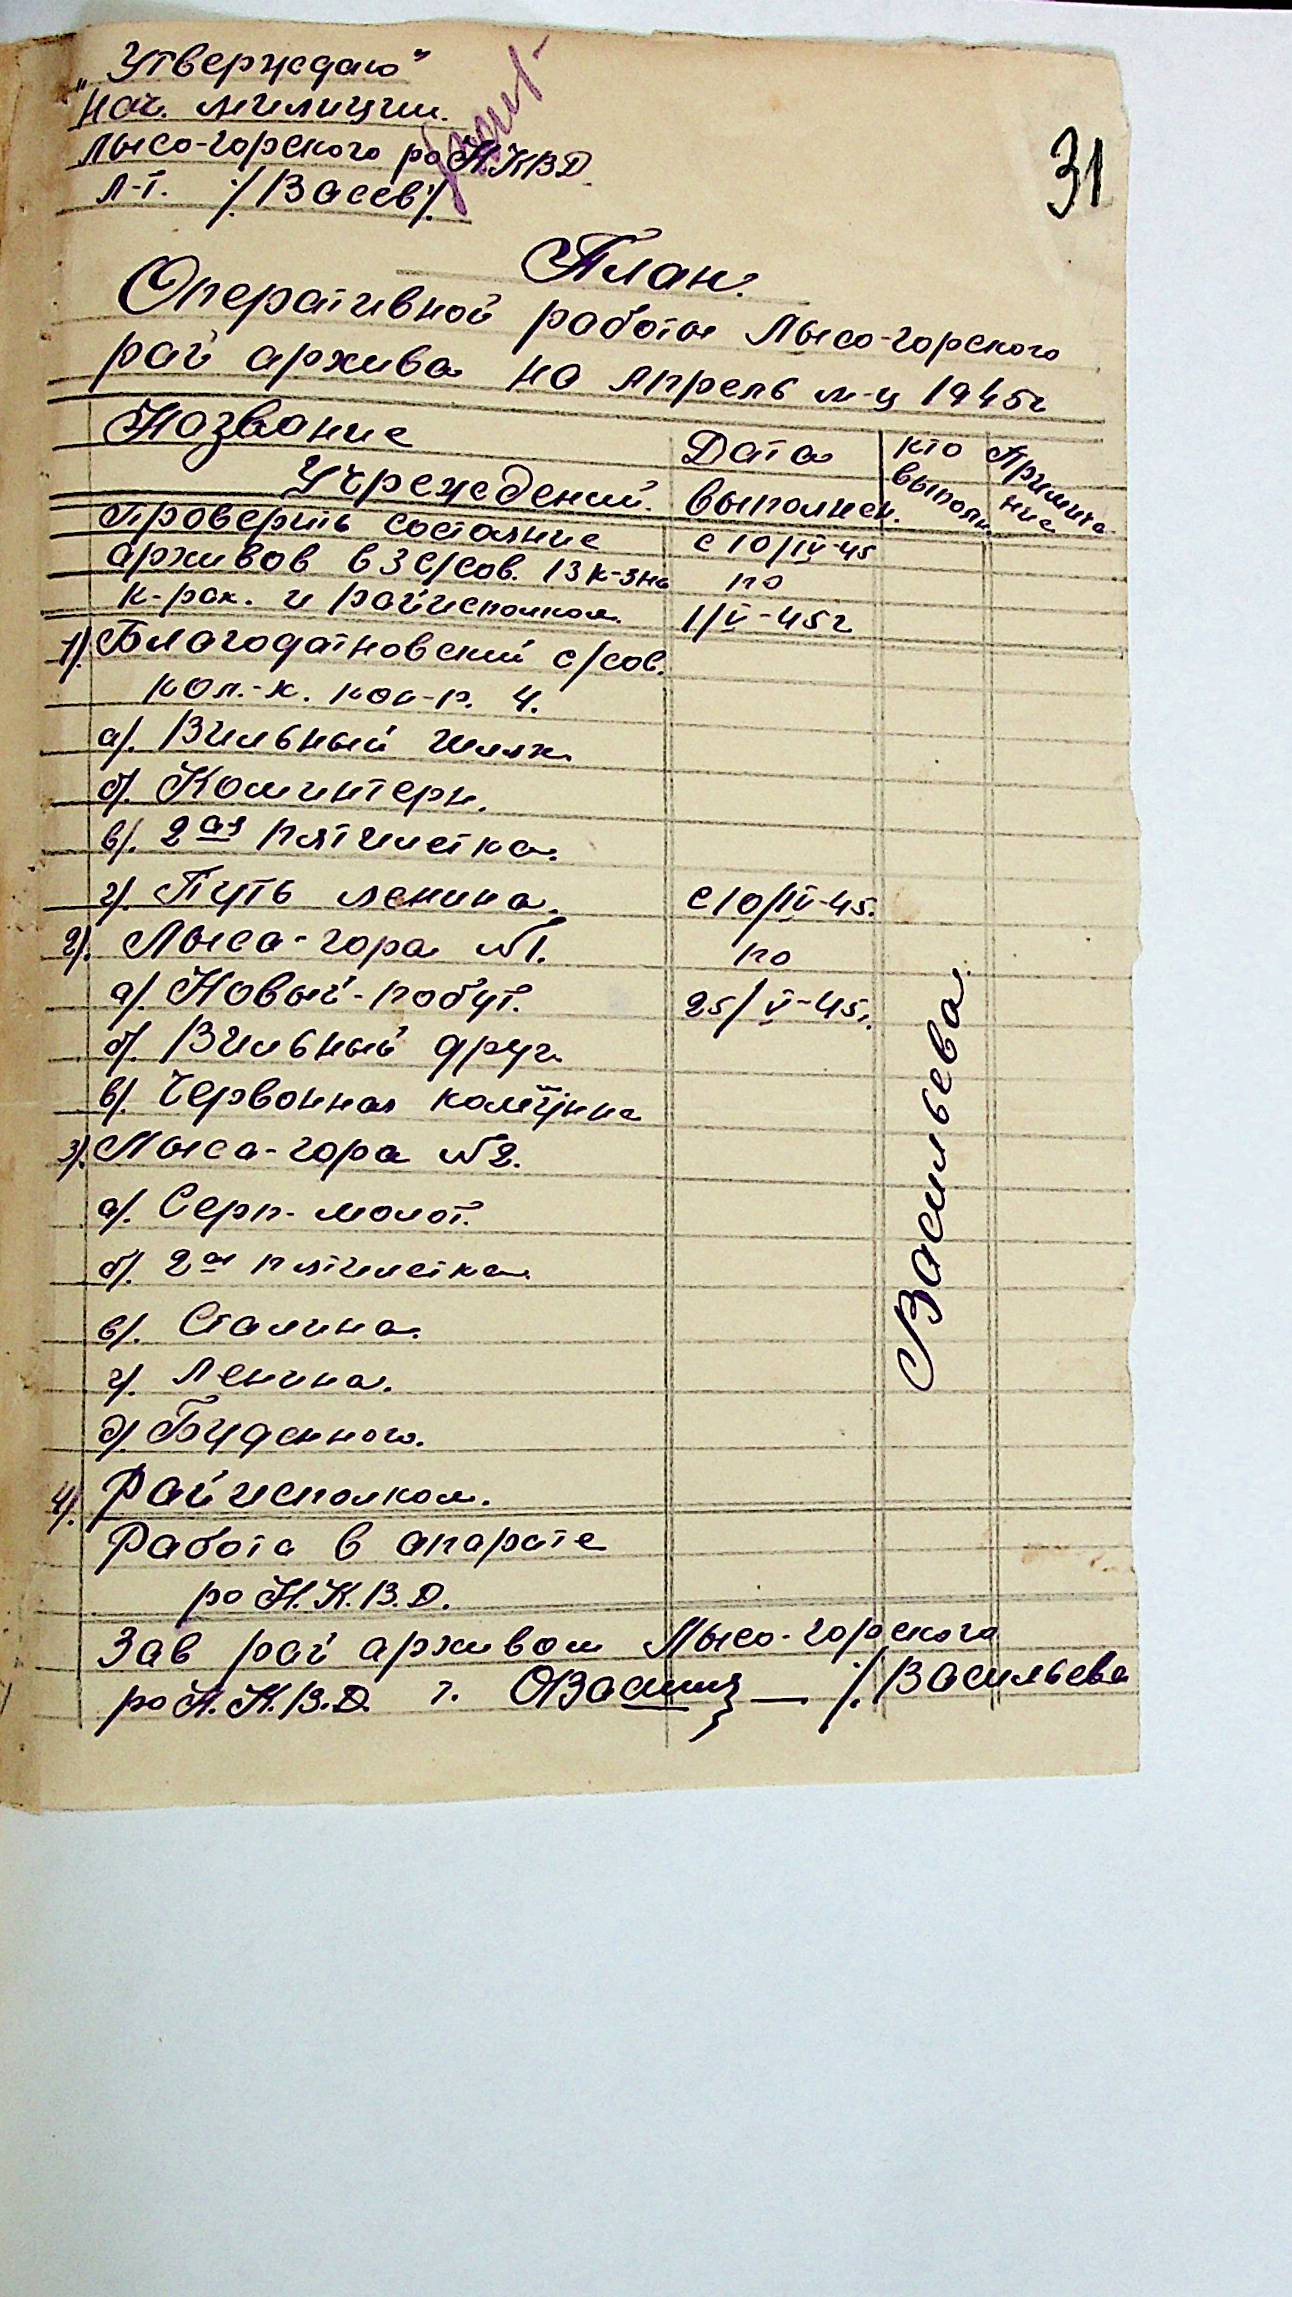 „Утверждаю"
Нач. милиции.
Лысо-горского ро Н.КВД
Л-т. /Васев/.
31
План.
Оперативной работы Лысо-горского
рай архива на Апрель м-ц 1945г
Название Учреждений. Дата выполнен. кто выполн. Примичание
Проверить состояние с 10/IV-45
архивов в 3 с/сов. 13 к-зна по
к-рах. и райисполком. 1/V-45г
1). Благодатновский с/сов.
кол.-х. кон-р. 4.
а). Вильный шлях.
б). Коминтерн.
в). 2ая пятилетка.
г). Путь ленина. с 10/IV-45.
2). Лыса-гора №1. по
а). Новый-побут. 25/V-45г.
б). Вильный друг.
в). Червонная комӯнна
3). Лыса-гора №2.
а). Серп-молот.
б). 2ая пятилетка.
в). Сталина.
г). Ленина.
д). Буденного.
4). Райисполком.
Васильева.
Работа в апарате
ро Н.К.В.Д.
Зав рай архивом Лысо-горского
ро Н.К.В.Д. т. /Васильева